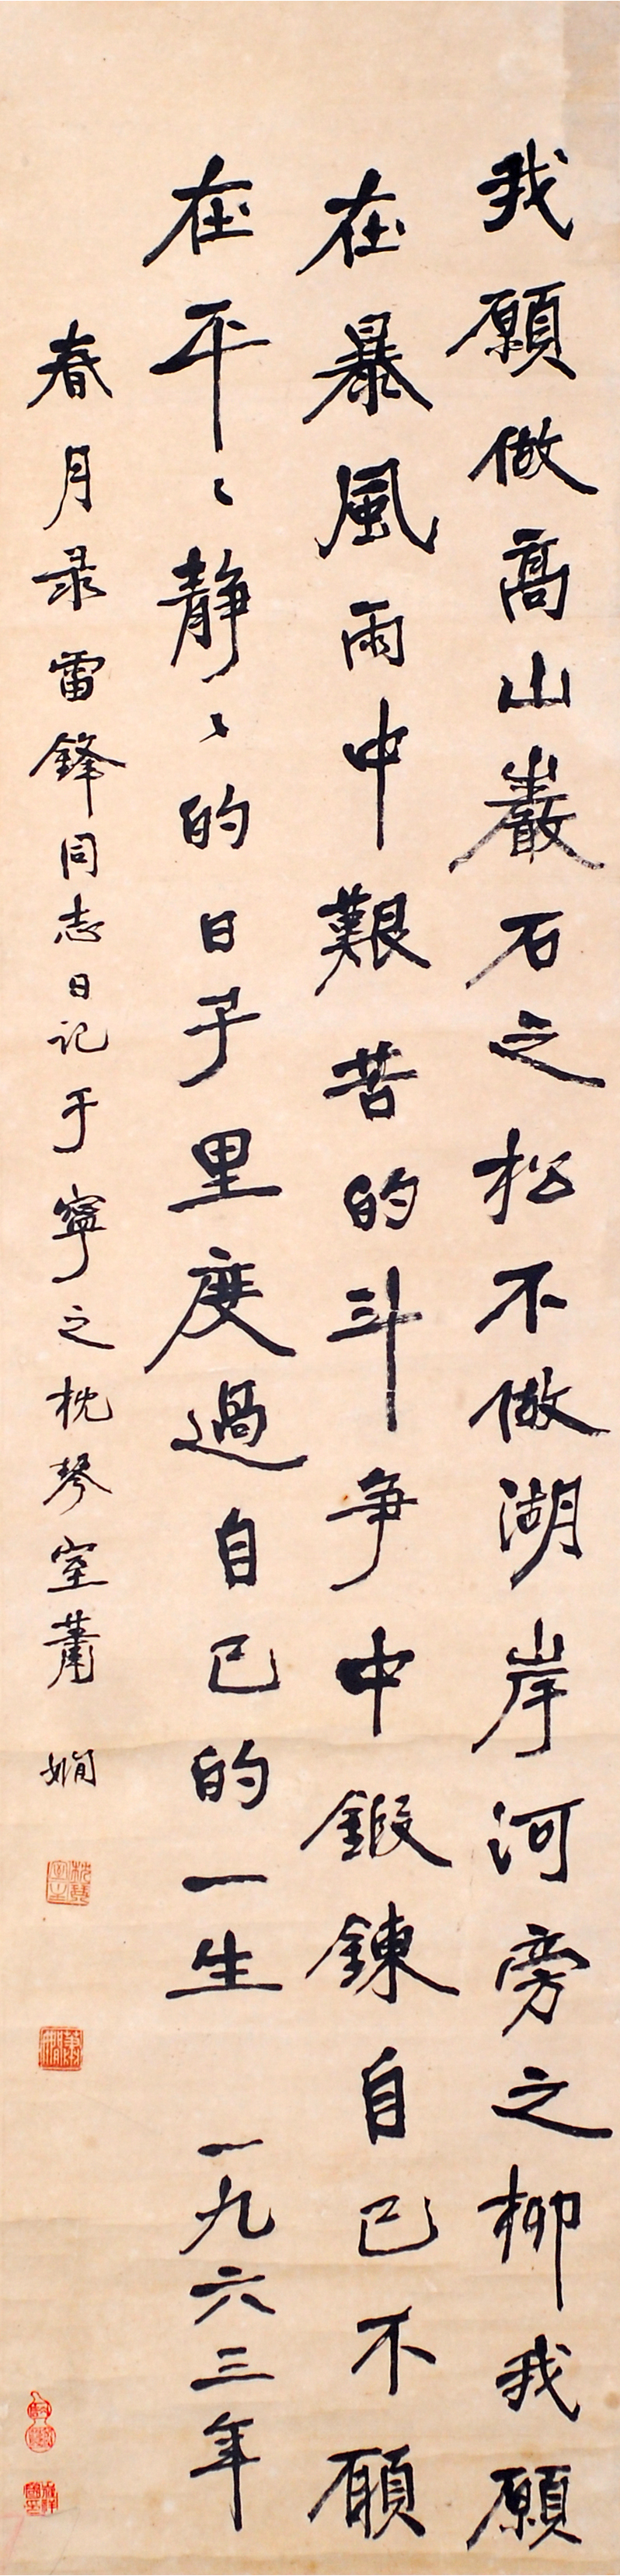 我願做高山巖石之松不做湖岸河旁之柳我願
在暴風雨中艱苦的斗爭中鍛鍊自己不願
在平〻靜〻的日子里度過自己的一生 一九六三年
春月录雷鋒同志日记于寧之枕琴室蕭嫻
枕琴室主
蕭嫻